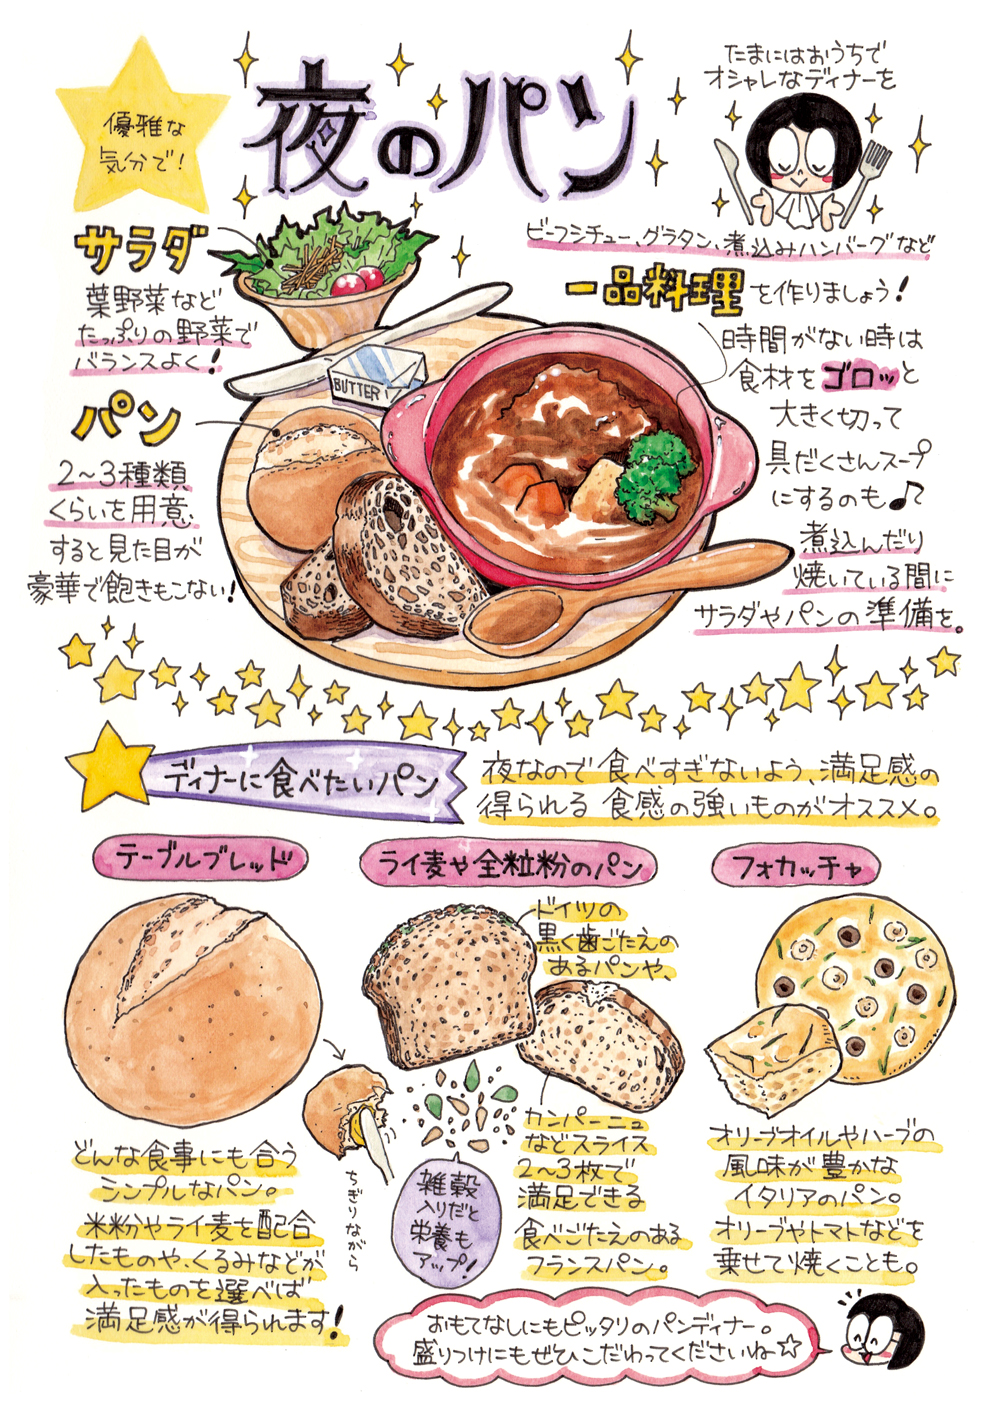 優雅な
気分で！
夜のパン
たまにはおうちで
オシャレなディナーを
サラダ
葉野菜など
たっぷりの野菜で
バランスよく！
パン
2〜3種類
くらいを用意
すると見た目が
豪華で飽きもこない！
BUTTER
ビーフシチュー、グラタン、煮込みハンバーグなど
一品料理を作りましょう！
時間がない時は
食材をゴロッと
大きく切って
具だくさんスープ
にするのも♪て
煮込んだり
焼いている間に
サラダやパンの準備を。
ディナーに食べたいパン
夜なので食べすぎないよう、満足感の
得られる食感の強いものがオススメ。
テーブルブレッド
どんな食事にも合う
シンプルなパン。
米粉やライ麦を配合
したものや、くるみなどが
入ったものを選べば
満足感が得られます！
ちぎりながら
ライ麦や全粒粉のパン
ドイツの
黒く歯ごたえの
あるパンや、
カンパーニュ
などスライス
2〜3枚で
満足できる
食べごたえのある
フランスパン。
雑穀
入りだと
栄養も
アップ！
フォカッチャ
オリーブオイルやハーブの
風味が豊かな
イタリアのパン。
オリーブやトマトなどを
乗せて焼くことも。
おもてなしにもピッタリのパンディナー。
盛りつけにもぜひこだわってくださいね☆